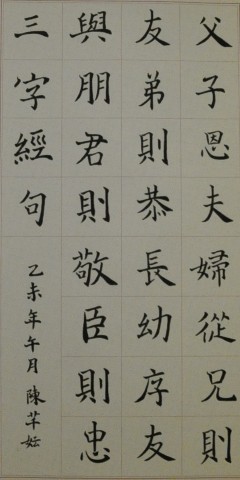 父子恩夫婦從兄則
友弟則恭長幼序友
與朋君則敬臣則忠
三字經句
乙未年午月陳芊妘